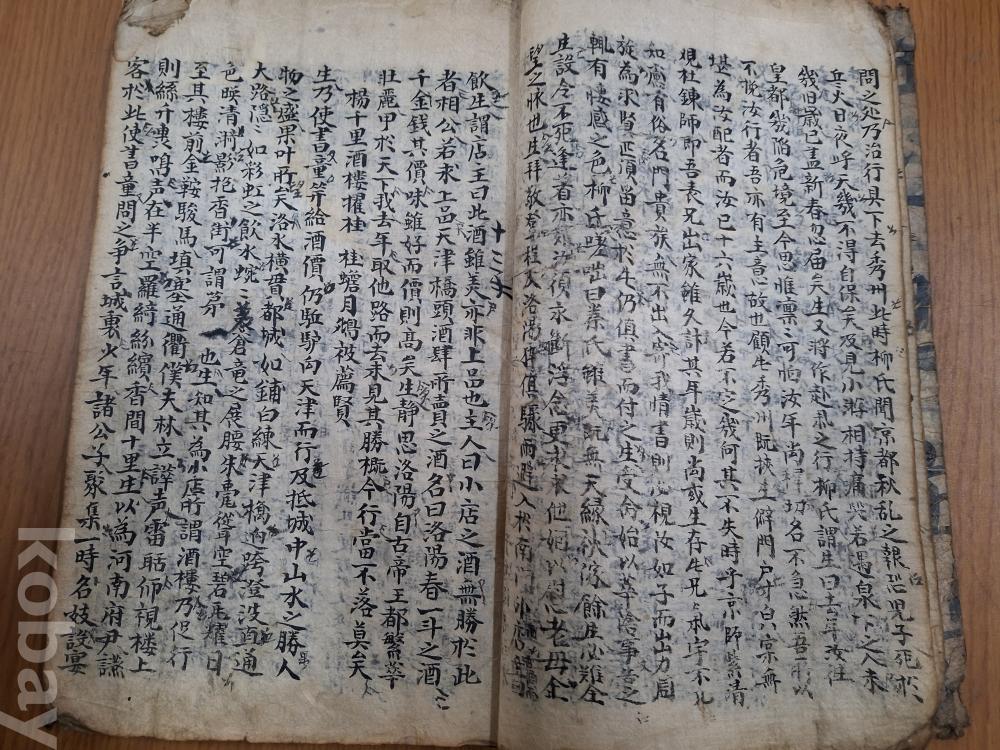 問之処乃治行具下去秀州此時柳氏聞京都秋乱之報恐児子死於
兵火日夜呼天幾不得自保矣及見小游相持痛哭若遇泉下之人未
幾旧歳已盡新春忽届矣生又将作赴擧之行柳氏謂生曰去年汝往
皇都幾陷危境至今思惟凛可怕汝年尚穉功名不急然吾所以
不挽汝行者吾亦有主意故也顧此秀州既挟且僻門戸才白宗無
堪為汝配者而汝已十六歳也今若不定幾何其不失時乎京師紫清
観杜錬師即吾表兄出家雖久計其年歳則尚或生存此兄氣宇不凡
知慮有俗名門貴族無不出入寄我情書則必視汝如子而出力周
旋為求賢匹須留意於此仍俱書而付之生受命始以華陰事告之
輒有悽感之色柳氏嗟咄曰秦氏雖美既無天緣
生設令不死逢着亦 須永斷浮念更求他姻以慰老母企
望之懐也生拜敬登程及洛陽猝値驟雨避入於南門 小
十三
飲生謂店主曰此酒雖美亦非上品也主人曰小店之酒無勝於此
者相公若求上品天津橋頭酒肆所賣之酒名曰洛陽春一斗之酒
千金錢其價味雖好而價則高矣生静思洛陽自古帝王都繁華
壯麗甲於天下我去年取他路而去未見其勝概今行當不落莫矣
楊千里酒樓擢桂 桂蟾月鴉被薦賢
生乃使書童笇給酒價仍駈驢向天津而行及抵城中山水之勝人
物之盛果叶所矣洛水横貫都城如鋪白練天津橋逈跨登波直通
大路隠々如彩虹之飲水蜿々蒼竜之展腰朱甍聳空碧瓦耀日
色暎清漪影抱香街可謂第一 也生知其為小店所謂酒樓乃促行
至其樓前金鞍駿馬填塞通衢僕夫林立譁声雷聒仰視樓上
則絲升 鳴声在半空羅綺絲繽香間十里生以為河南府尹讌
客於此使書童問之争言城裏少年諸公子聚集一時名妓設宴
kobay